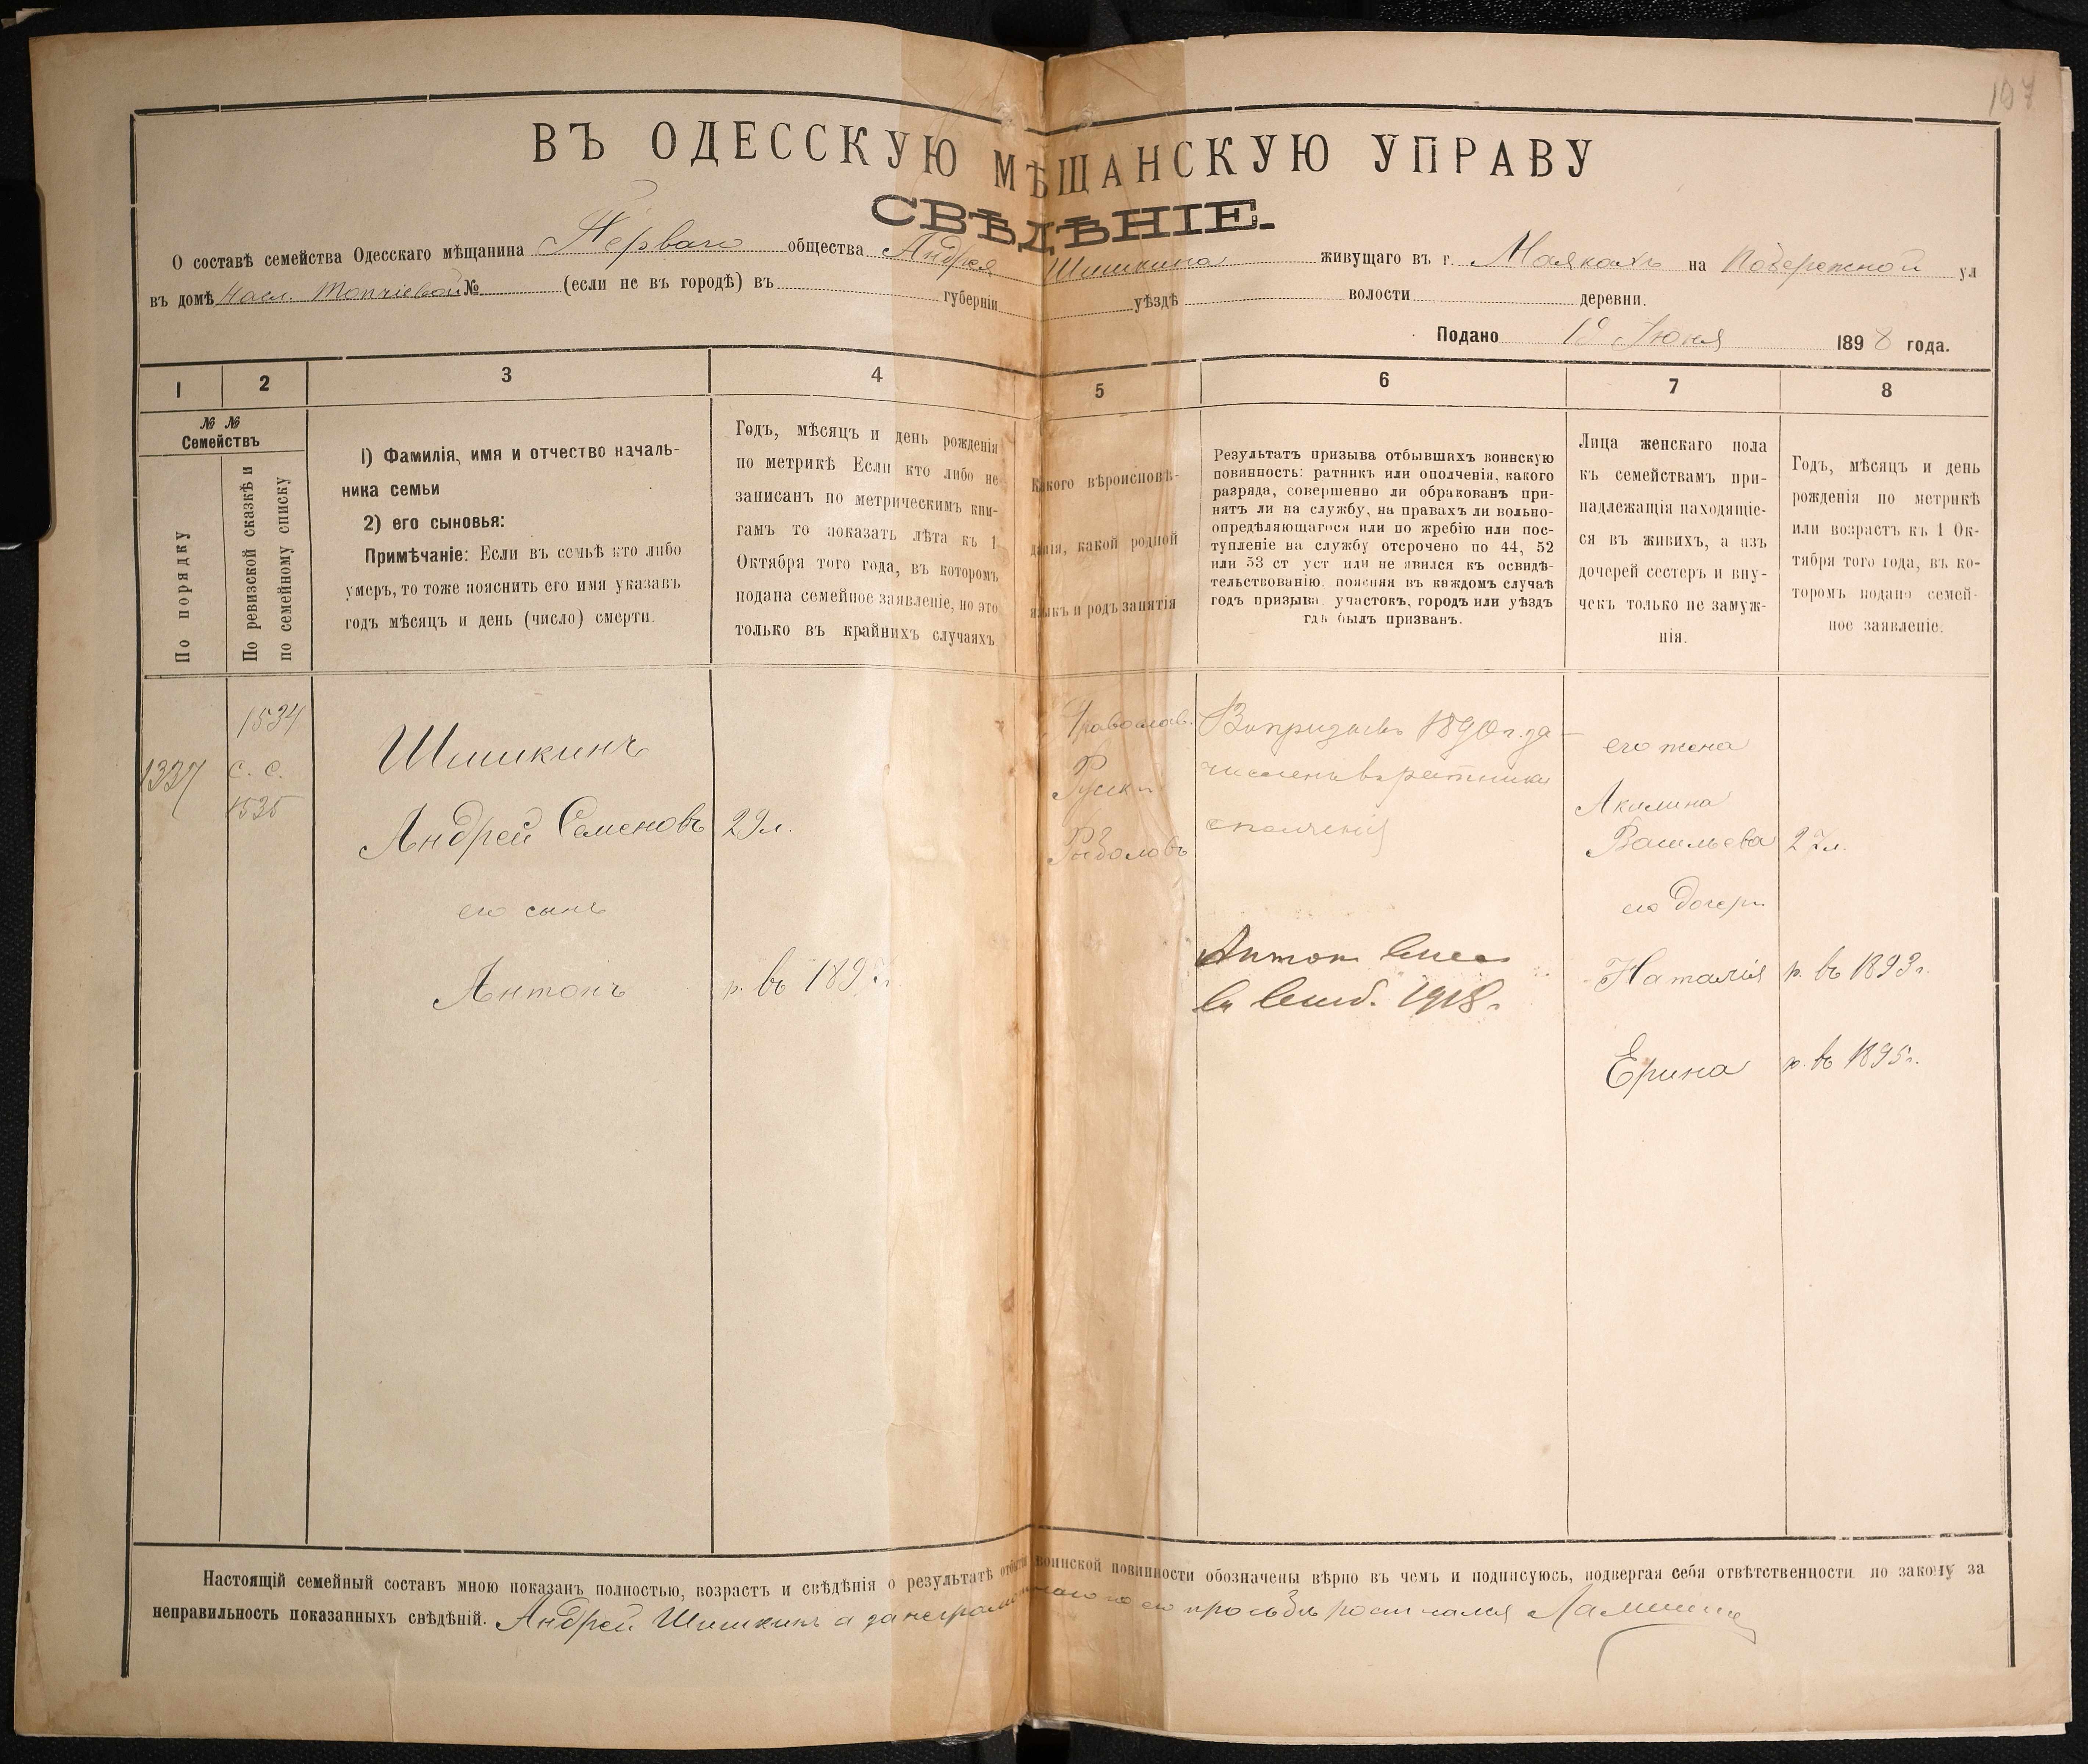 107
ВЪ ОДЕССКУЮ МѢЩАНСКУЮ УПРАВУ
СВѢДѢНІЕ.
О составѣ семейства Одесскаго мѣщанина Перваго общества Андрея Шишкина живущаго въ г. Маякахъ на Побережной ул
въ домѣ насл. Топчіевой № (если не въ городѣ) въ губерніи уѣздѣ волости деревни.
Подано 1º Іюня 1898 года.
1 2 3 4 5 6 7 8
№ № Семействъ
По порядку
По ревизской сказкѣ и
по семейному списку
1) Фамилія, имя и отчество началь-
ника семьи
2) его сыновья:
Примѣчаніе: Если въ семьѣ кто либо
умеръ, то тоже пояснить его имя указавъ
годъ мѣсяцъ и день (число) смерти.
Годъ, мѣсяцъ и день рожденія
по метрикѣ Если кто либо не
записанъ по метрическимъ кни-
гамъ то показать лѣта къ 1
Октября того года, въ которомъ
подана семейное заявленіе, но это
только въ крайнихъ случаяхъ
Какого вѣроисповѣ-
данія, какой родной
языкъ и родъ занятія
Результатъ призыва отбывшихъ воинскую
повинность: ратникъ или ополченія, какого
разряда, совершенно ли обракованъ при-
нятъ ли на службу, на правахъ ли вольно-
опредѣляющагося или по жребію или пос-
тупленіе на службу отсрочено по 44, 52
или 53 ст уст или не явился къ освидѣ-
тельствованію. поясняя въ каждомъ случаѣ
годъ призыва. участокъ, городъ или уѣздъ
гдѣ былъ призванъ.
Лица женскаго пола
къ семействамъ при-
надлежащія находящіе-
ся въ живихъ, а изъ
дочерей сестеръ и вну-
чекъ только не замуж-
нія.
Годъ, мѣсяцъ и день
рожденія по метрикѣ
или возрастъ къ 1 Ок-
тября того года, въ ко-
торомъ подано семей-
ное заявленіе.
1337
1534
с. с.
1535
Шишкинъ
Андрей Семеновъ 29 л.
его сынъ
Антонъ р. въ 189
Православ.
Русск
Рыболовъ
В призывъ 1890 г. за-
численъ въ ратники
ополченія
Антон
1918 г.
его жена
Акилина
Васильева 27 л.
его дочери
Наталія р. въ 1893 г.
Ерина р. въ 1895 г.
Настоящій семейный составъ мною показанъ полностью, возрастъ и свѣдѣнія о результатѣ отбытія воинской повинности обозначены вѣрно въ чемъ и подписуюсь, подвергая себя отвѣтственности по закону за
неправильность показанныхъ свѣдѣній. Андрей Шишкинъ а за неграмотнаго по его просьбѣ росписался